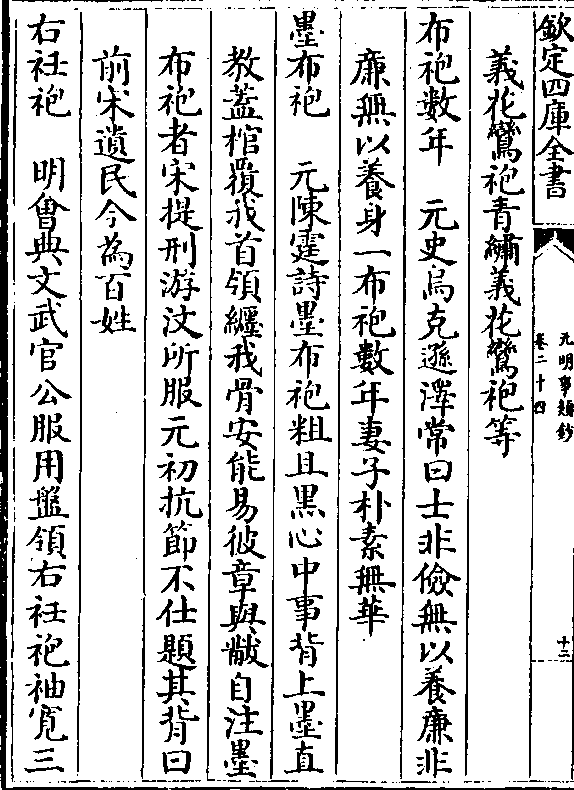 欽定四庫全書
元明事類鈔
卷二十四
十二
義花鸞袍青繡義花鸞袍等
布袍數年　元史烏克遜澤常曰士非儉無以養廉非
廉無以養身一布袍數年妻子朴素無華
墨布袍　元陳霆詩墨布袍粗且黒心中事背上墨直
教蓋棺覆我首領纒我骨安能易彼章與黻自注墨
布袍者宋提刑游汶所服元初抗節不仕題其背曰
前宋遺民今為百姓
右衽袍　明會典文武官公服用盤領右衽袍袖寛三